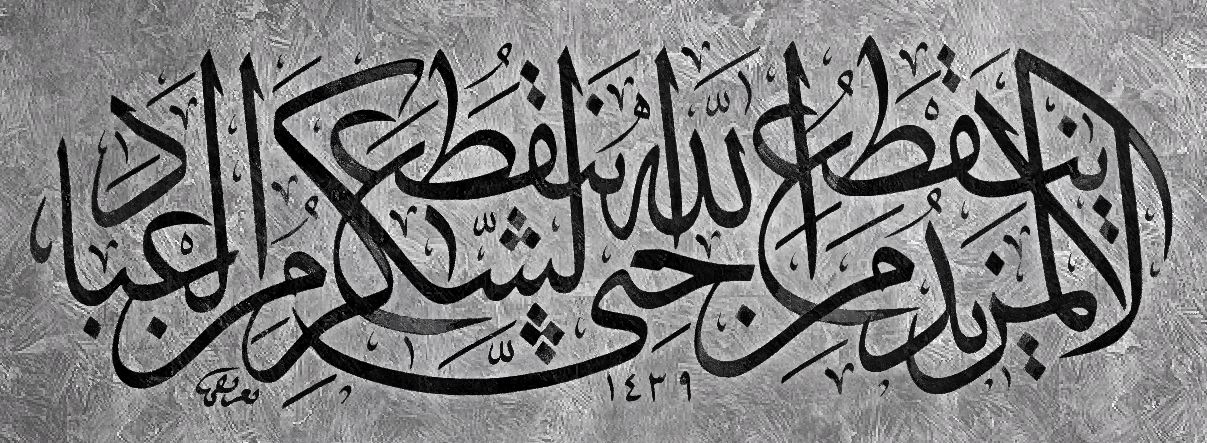 لا ينقطع المزيد من الله حتى ينقطع الشكر من العباد
١٤٣٩